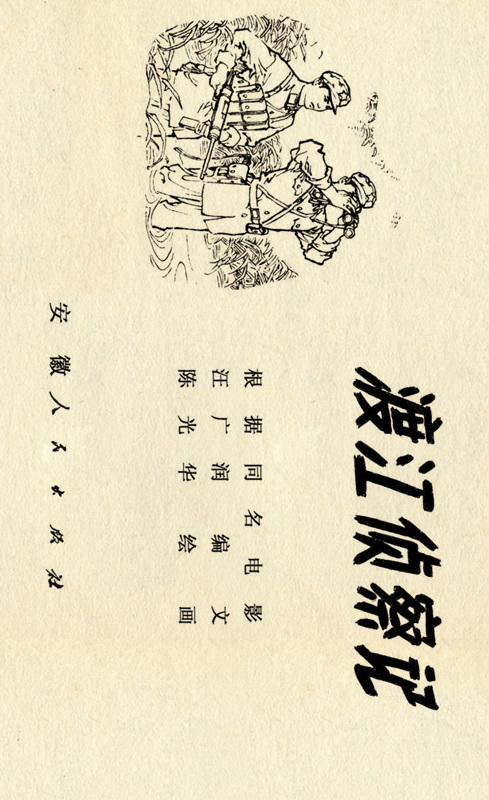 渡江侦察记
根据同名电影
汪广润编文
陈光华绘画
安徽人民出版社